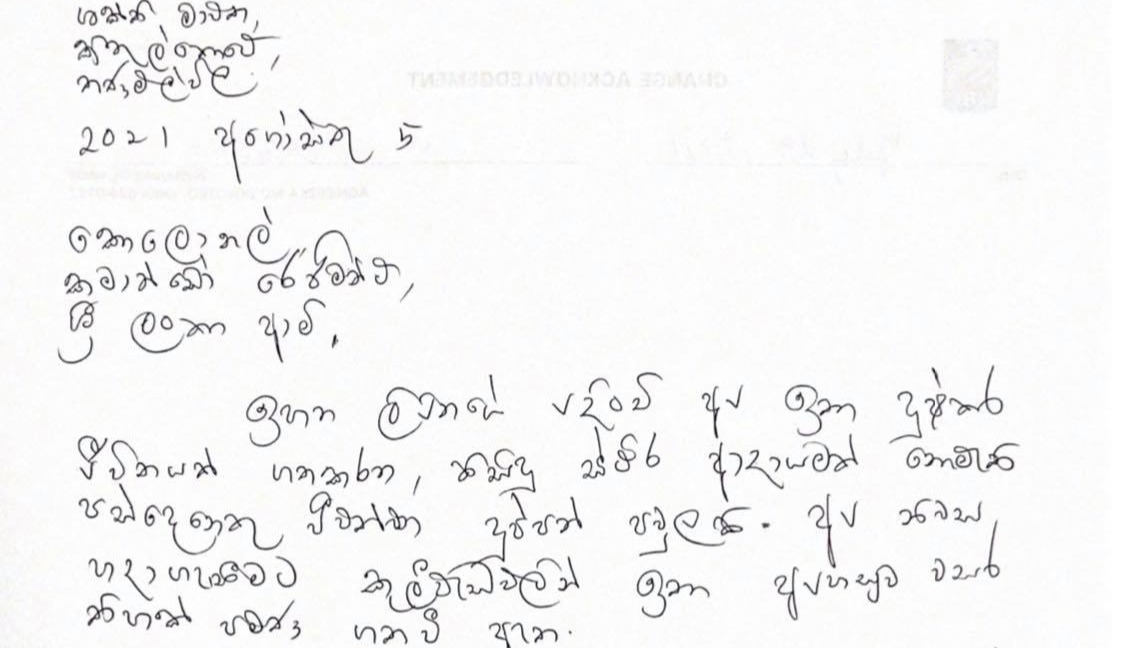 ශක්ති මාවත,
කිතුල්කොටේ,
තණමල්විල
2021 අගෝස්තු 5
කොලොනල්,
කමාන්ඩෝ රෙජිමන්ට්,
ශ්‍රී ලංකා ආමි,
ඉහත ලිපිනයේ පදිංචි අප ඉතා දුෂ්කර
ජීවිතයක් ගතකරන, කිසිදු ස්ථිර ආදායමක් නොමැති
පස්දෙනෙකු ජීවත්වන දුප්පත් පවුලකි. අප නිවස
හදාගැනීමට කුලීවැඩවලින් ඉතා අපහසුව වසර
කිහිපක් පමණ ගත වී ඇත.
CHANGE ACKNOWLEDGEMENT